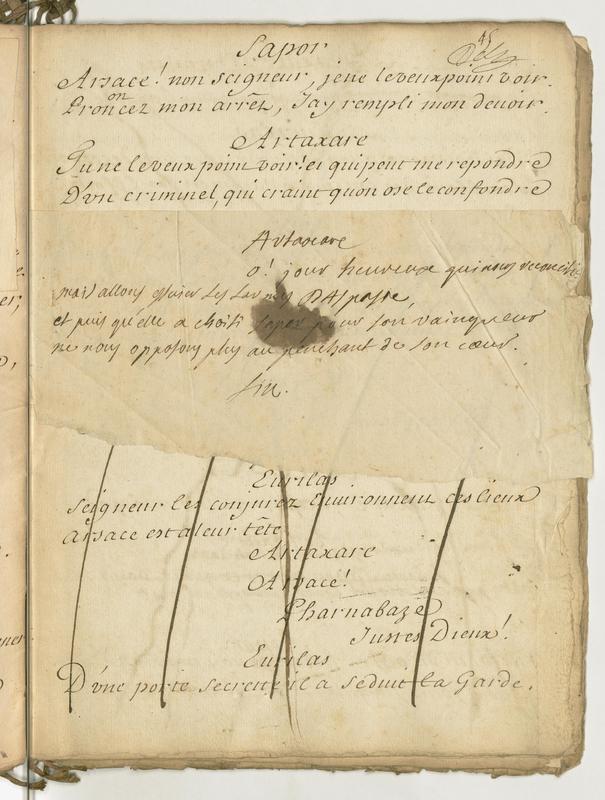 45
Sapor
Arsace! non seigneur, je ne le veux point voir.
Prononcez mon arrêt, J'ay rempli mon devoir.
Artaxare
Tu ne le veux point voir! et qui peut me repondre
D'vn criminel, qui craint qu'on ose le confondre
Artaxare
o! jour heureux qui nous reconcilie
mais allons essuier les larmes D'Aspasie,
et puis qu'elle a choisi Sapor pour son vainqueur
ne nous opposons plus au penchant de son cœur.
fin.
Eurilas.
Seigneur les conjurez Environnent ces lieux
Arsace est a leur tête
Artaxare
Arsace!
Pharnabaze
Justes Dieux!
Eurilas
D'vne porte secrette il a seduit la Garde.